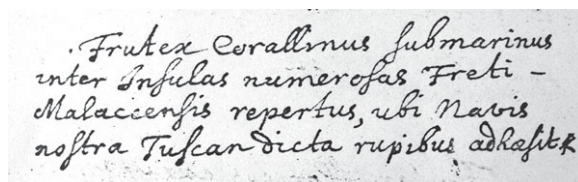 . Frutex Corallinus submarinus
inter Insulas numerosas Freti -
Malaccensis repertus, ubi Navis
nostra Tuscan dicta rupibus adhæsit